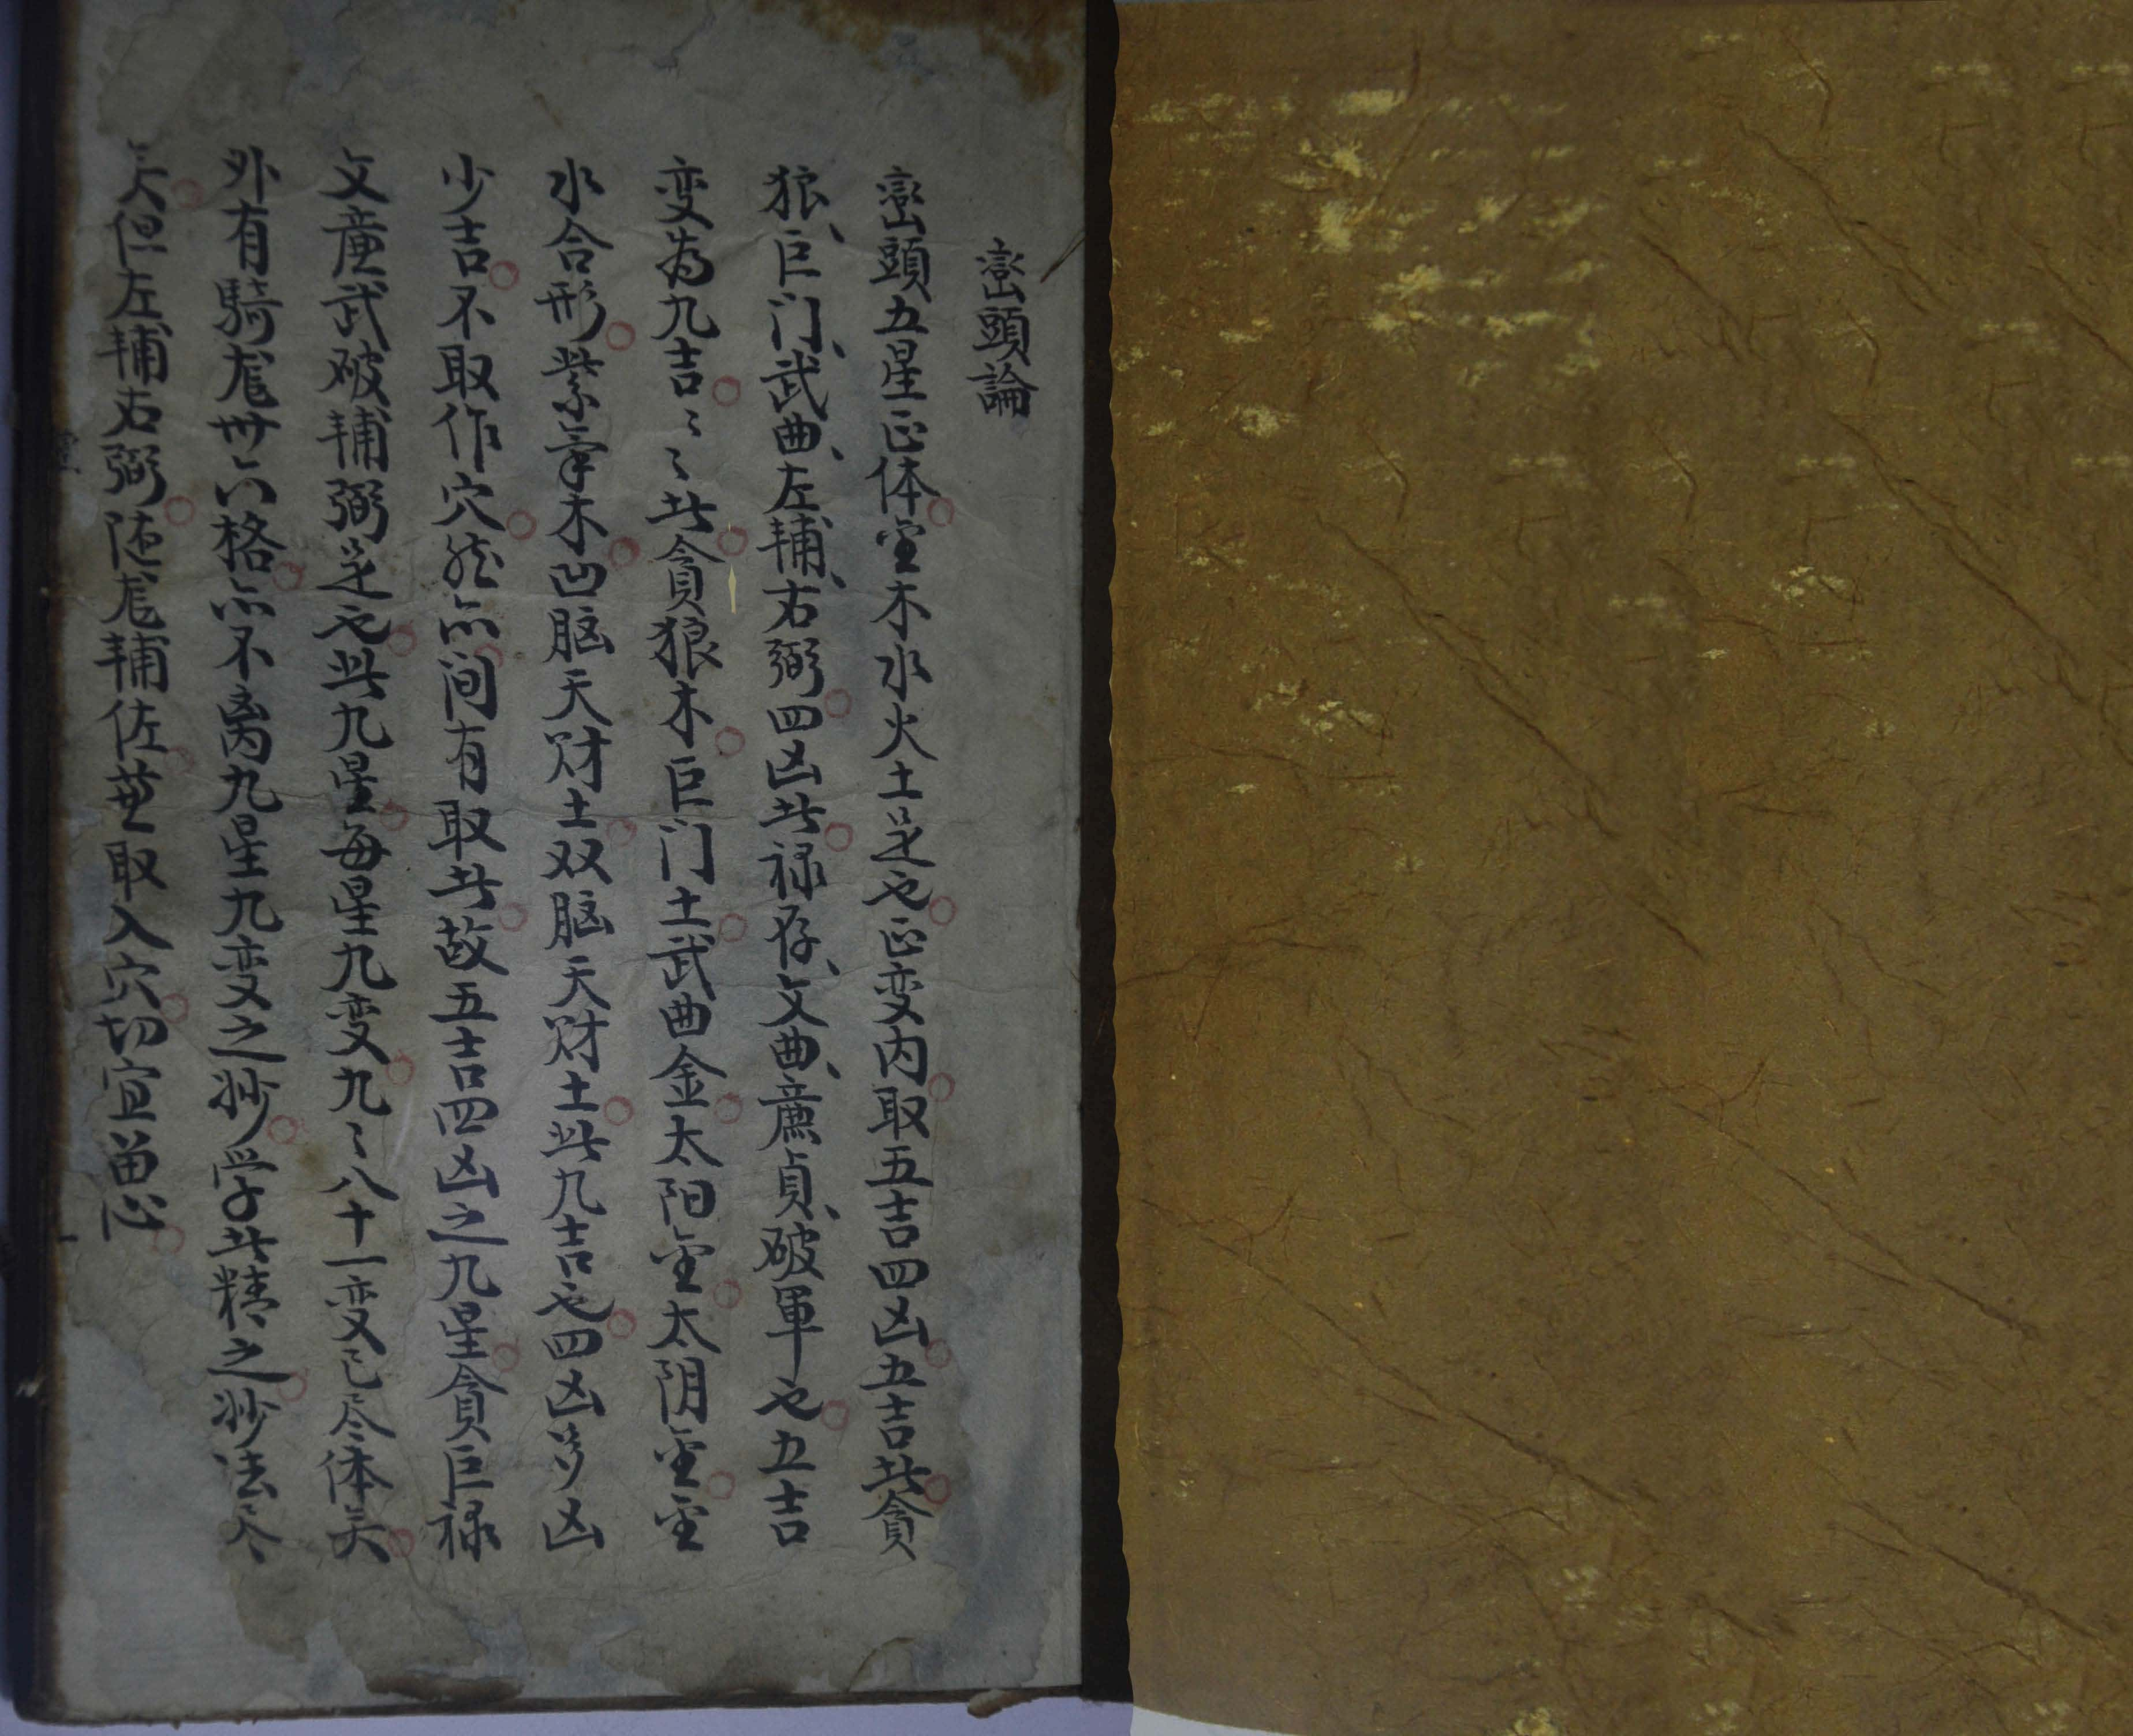 巒頭論
巒頭五星正体金木水火土是也正变内取五吉四凶五吉此貪
狼巨门武曲左輔右弼四凶此禄存文曲廉貞破軍也五吉
变為九吉〻〻此貪狼木巨门土武曲金太阳金太阴金金
水合形紫氣木凹脳天财土双脳天财土此九吉也四凶多凶
少吉不取作穴然亦间有取此故五吉四凶之九星貪巨禄
文亷武破輔弼是也此九星每星九变九〻八十一变已尽体矣
外有騎龙卅六格亦不离九星九变之妙学此精之妙法尽
矣但左輔右弼随龙輔佐並取入穴切宜畄心